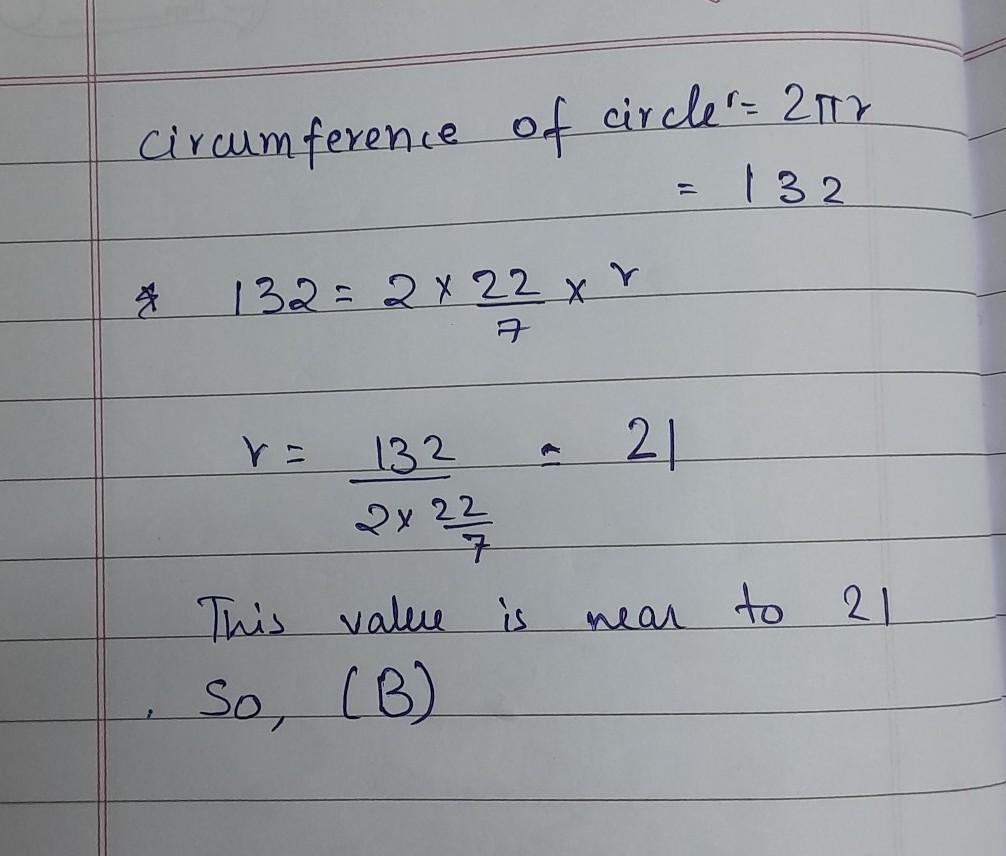 circumference of circle = 2πr
= 132
* 132 = 2 × 22/7 × r
r = 132/(2 × 22/7) = 21
This value is near to 21
. So, (B)